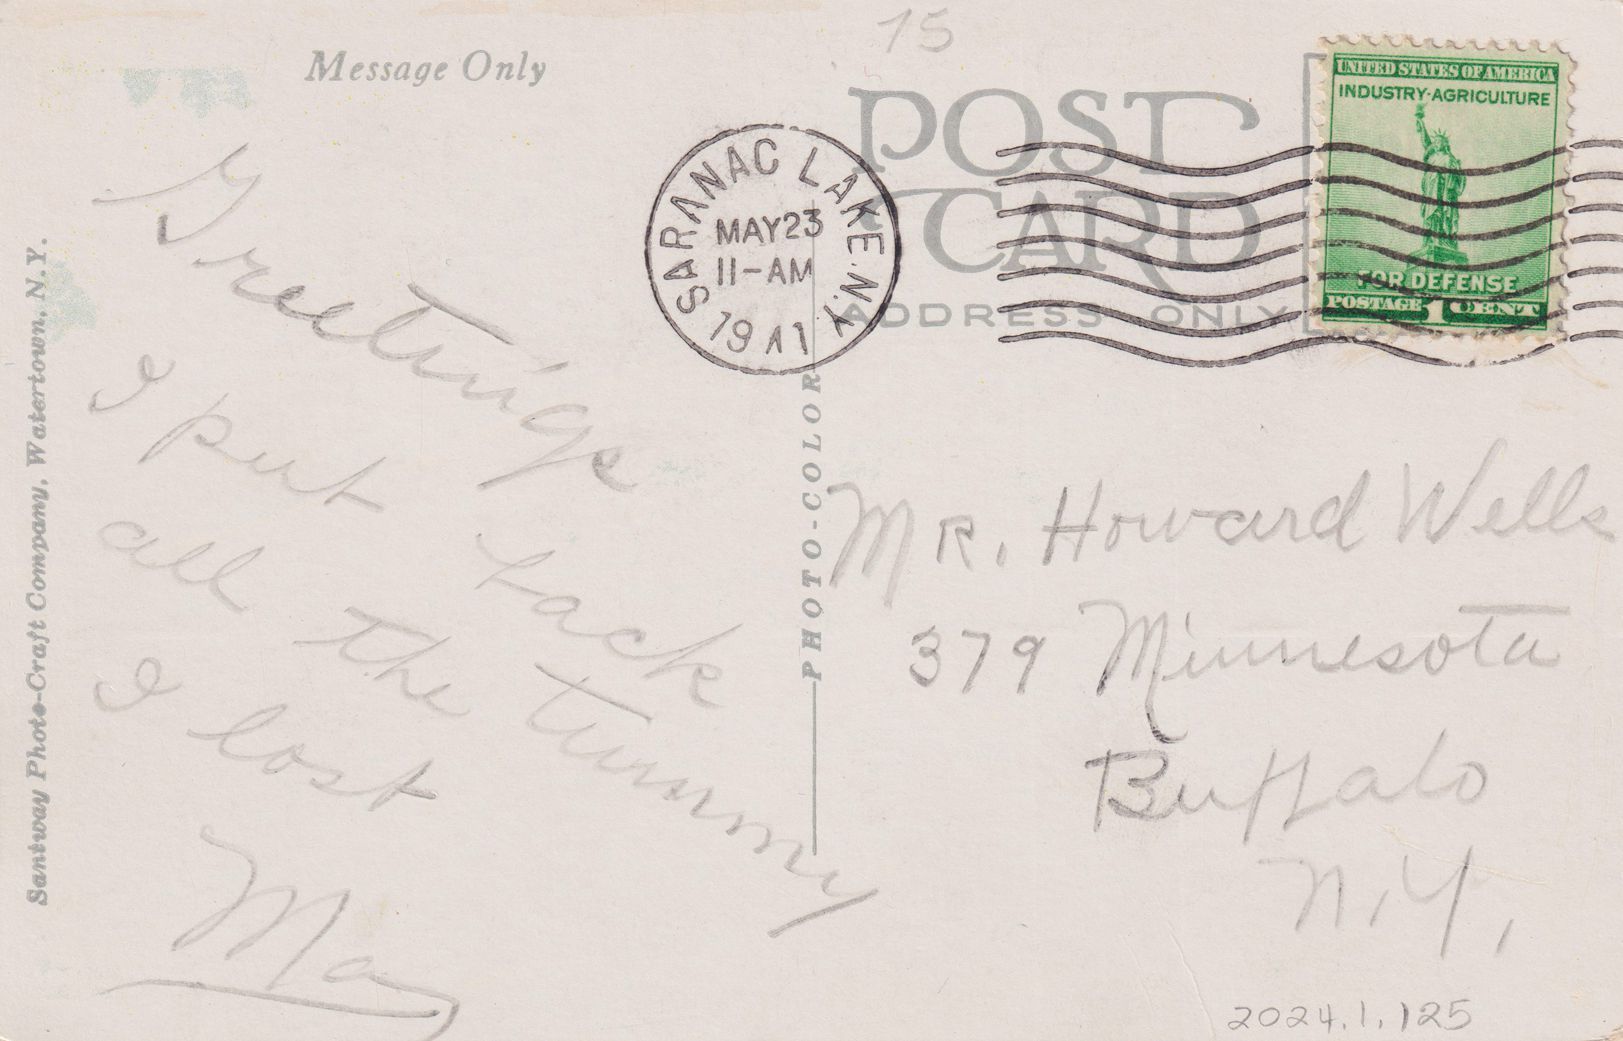 75
Message Only
POST
CARD
ADDRESS ONLY
SARANAC LAKE, N.Y.
MAY 23
11-AM
1941
UNITED STATES OF AMERICA
INDUSTRY·AGRICULTURE
FOR DEFENSE
POSTAGE 1 CENT
Greetings
I put back
all the tummy
I lost
May
Mr. Howard Wells
379 Minnesota
Buffalo
N.Y.,
PHOTO-COLOR
Santway Photo-Craft Company, Watertown, N.Y.
2024.1.125